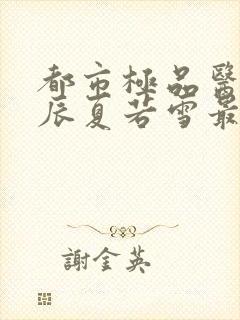 都市極品醫
辰夏若雪最
謝金英